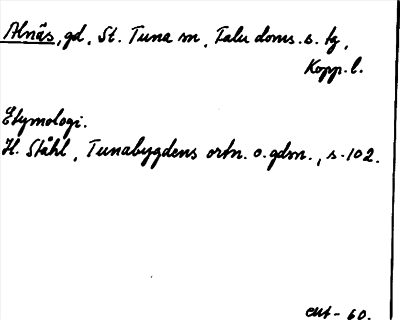 Alnäs, gd, St. Tuna sn, Falu doms. s. tg,
Kopp. l.
Etymologi.
H. Ståhl, Tunabygdens ortn. o. gdsn., s. 102.
- 60.